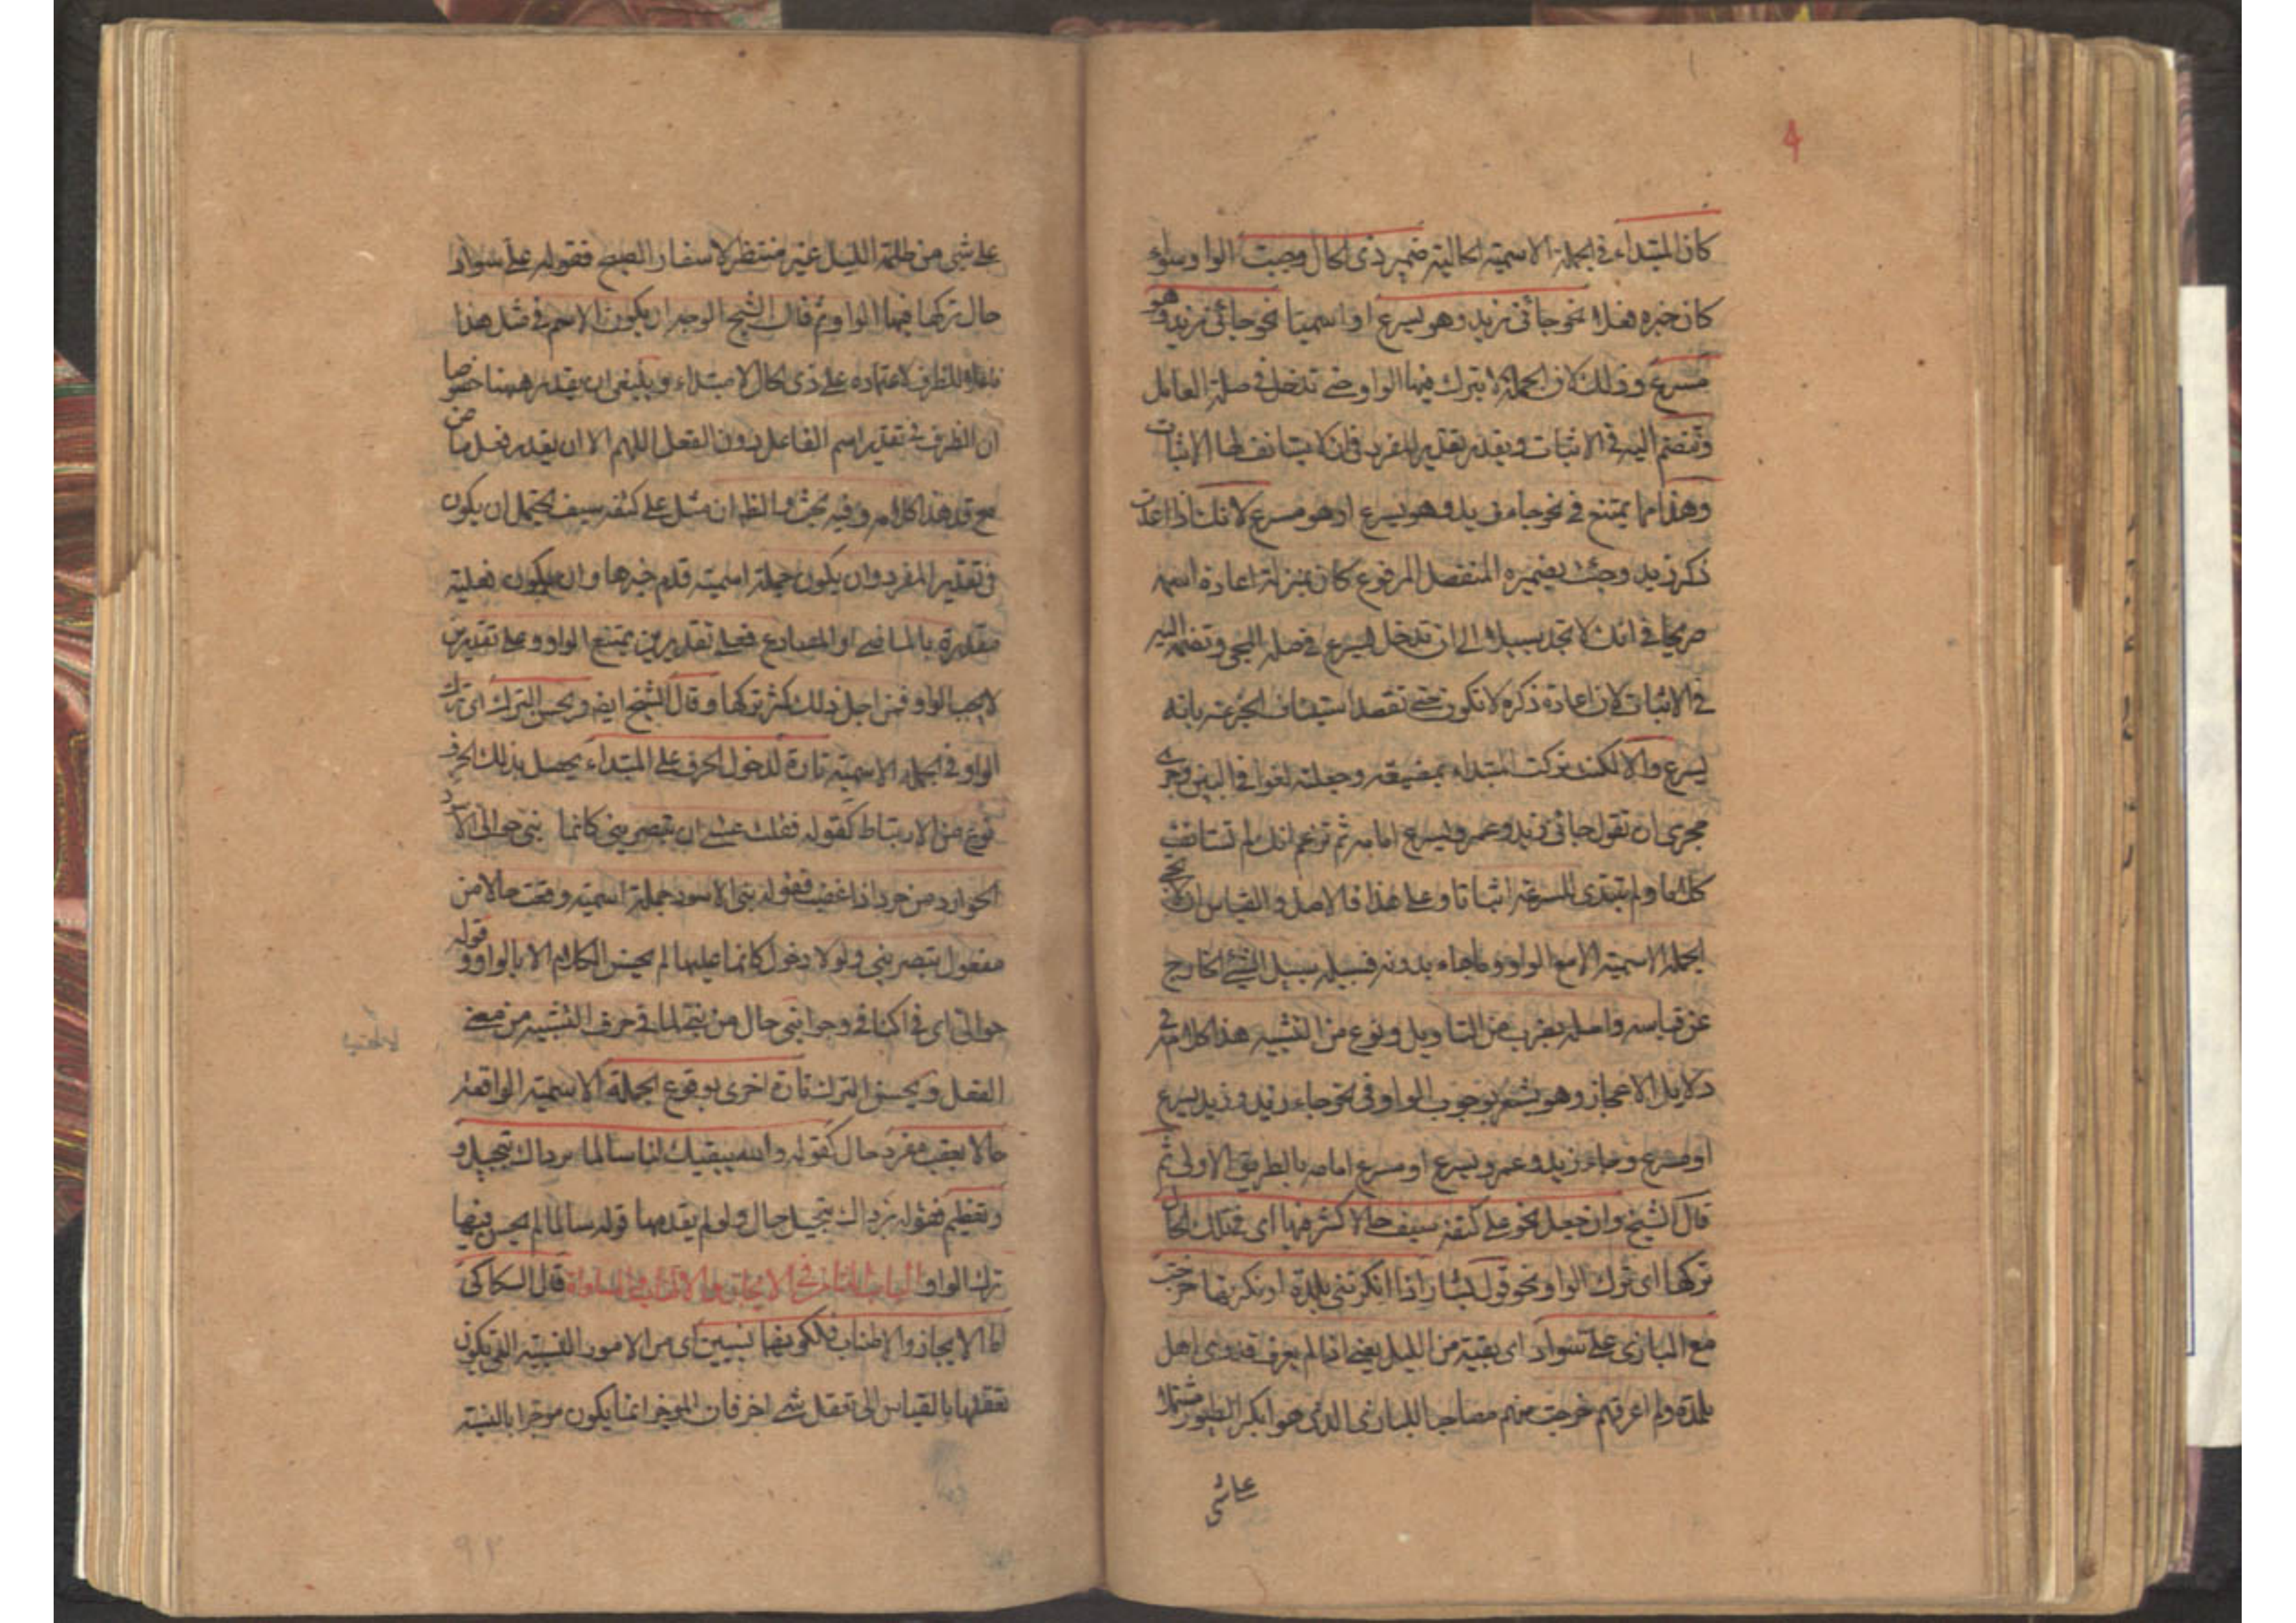 كان المبتداء في الجملة الاسمية الحالية ضمير ذي الحال وجبت الواو سواء
كان خبره فعلا نحو جائني زيد وهو يسرع او اسميتا نحو جائني زيد وهو
مسرع وذلك لان الجملة لا يترك فيها الواو حتى تدخل في صلة العامل
وتنضم اليه في الاثبات ويقدر تقدير المفرد في ان لا يستانف لها الاثبات
وهذا مما يمتنع في نحو جاءني زيد وهو يسرع او هو مسرع لانك اذا اعدت
ذكر زيد وجئت بضميره المنفصل المرفوع كان بمنزلة اعادة اسمه
صريحا في انك لا تجد سبيلا الى ان تدخل يسرع في صلة المجئ وتضمه اليه
في الاثبات لان اعادة ذكره لا تكون حتى تقصد استيناف الخبر عنه بانه
يسرع والا لكنت تركت المبتداء بمضيعة وجعلته لغوا في البين وجرى
مجرى ان تقول جائني زيد وعمرو يسرع امامه ثم تزعم انك لم تستانف
كلاما ولم تبتدئ للسرعة اثباتا وعلى هذا فالاصل والقياس ان لا يجئ
الجملة الاسمية الا مع الواو وما جاء بدونه فسبيله سبيل الشئ الخارج
عن قياسه واصله بضرب من التاويل ونوع من التشبيه هذا كلامه في
دلايل الاعجاز وهو مشعر بوجوب الواو في نحو جاء زيد وزيد يسرع
او مسرع وجاء زيد وعمرو يسرع او مسرع امامه بالطريق الاولى ثم
قال الشيخ وان جعل نحو على كتفه سيف حالا كثر فيها اى في تلك الحال
تركها اى ترك الواو نحو قول بشار اذا انكرتني بلدة او نكرتها خرجت
مع البازى على سواد اى بقية من الليل يعنى اذا لم يعرف قدرى اهل
بلدة ولم اعرفهم خرجت منهم مصاحبا للبازى الذى هو ابكر الطيور مشتملا
على شئ
على شئ من ظلمة الليل غير منتظر لاسفار الصبح فقوله على سواد
حال ترك فيها الواو ثم قال الشيخ الوجه ان يكون الاسم في مثل هذا
فاعلا للظرف لاعتماده على ذى الحال لا مبتداء وينبغى ان يقدر ههنا خصوصا
ان الظرف في تقدير اسم الفاعل دون الفعل اللهم الا ان يقدر فعل ماض
مع قد هذا كلامه وفيه بحث والظ ان مثل على كتفه سيف يحتمل ان يكون
في تقدير المفرد وان يكون جملة اسمية قدم خبرها وان يكون فعلية
مقدرة بالماضى او المضارع فعلى تقديرين يمتنع الواو وعلى تقديرين
لا يجب الواو فمن اجل ذلك كثر تركها وقال الشيخ ايضا ويحسن الترك اى ترك
الواو في الجملة الاسمية تارة لدخول الحرف على المبتداء يحصل بذلك الحرف
نوع من الارتباط كقوله فقلت عسى ان تبصريني كانما بنى حوالى الاسود
الحوارد من حرد اذا غضب فقوله بنى الاسود جملة اسمية وقعت حالا من
مفعول تبصريني ولولا دخول كانما عليها لم يحسن الكلام الا بالواو وقوله
حوالى اى في اكنافى وجوانبى حال من بنى لما في حرف التشبيه من معنى
الفعل ويحسن الترك تارة اخرى بوقوع الجملة الاسمية الواقعة
حالا بعقب مفرد حال كقوله والله يبقيك لنا سالما برداك تبجيل و
وتعظيم فقوله برداك تبجيل حال ولو لم يقدمها قوله سالما لم يحسن فيها
ترك الواو الباب الثامن في الايجاز والاطناب والمساواة قال السكاكى
اما الايجاز والاطناب فلكونهما نسبيين اى من الامور النسبية التى يكون
تعقلها بالقياس الى تعقل شئ اخر فان الموجز انما يكون موجزا بالنسبة
٩٢